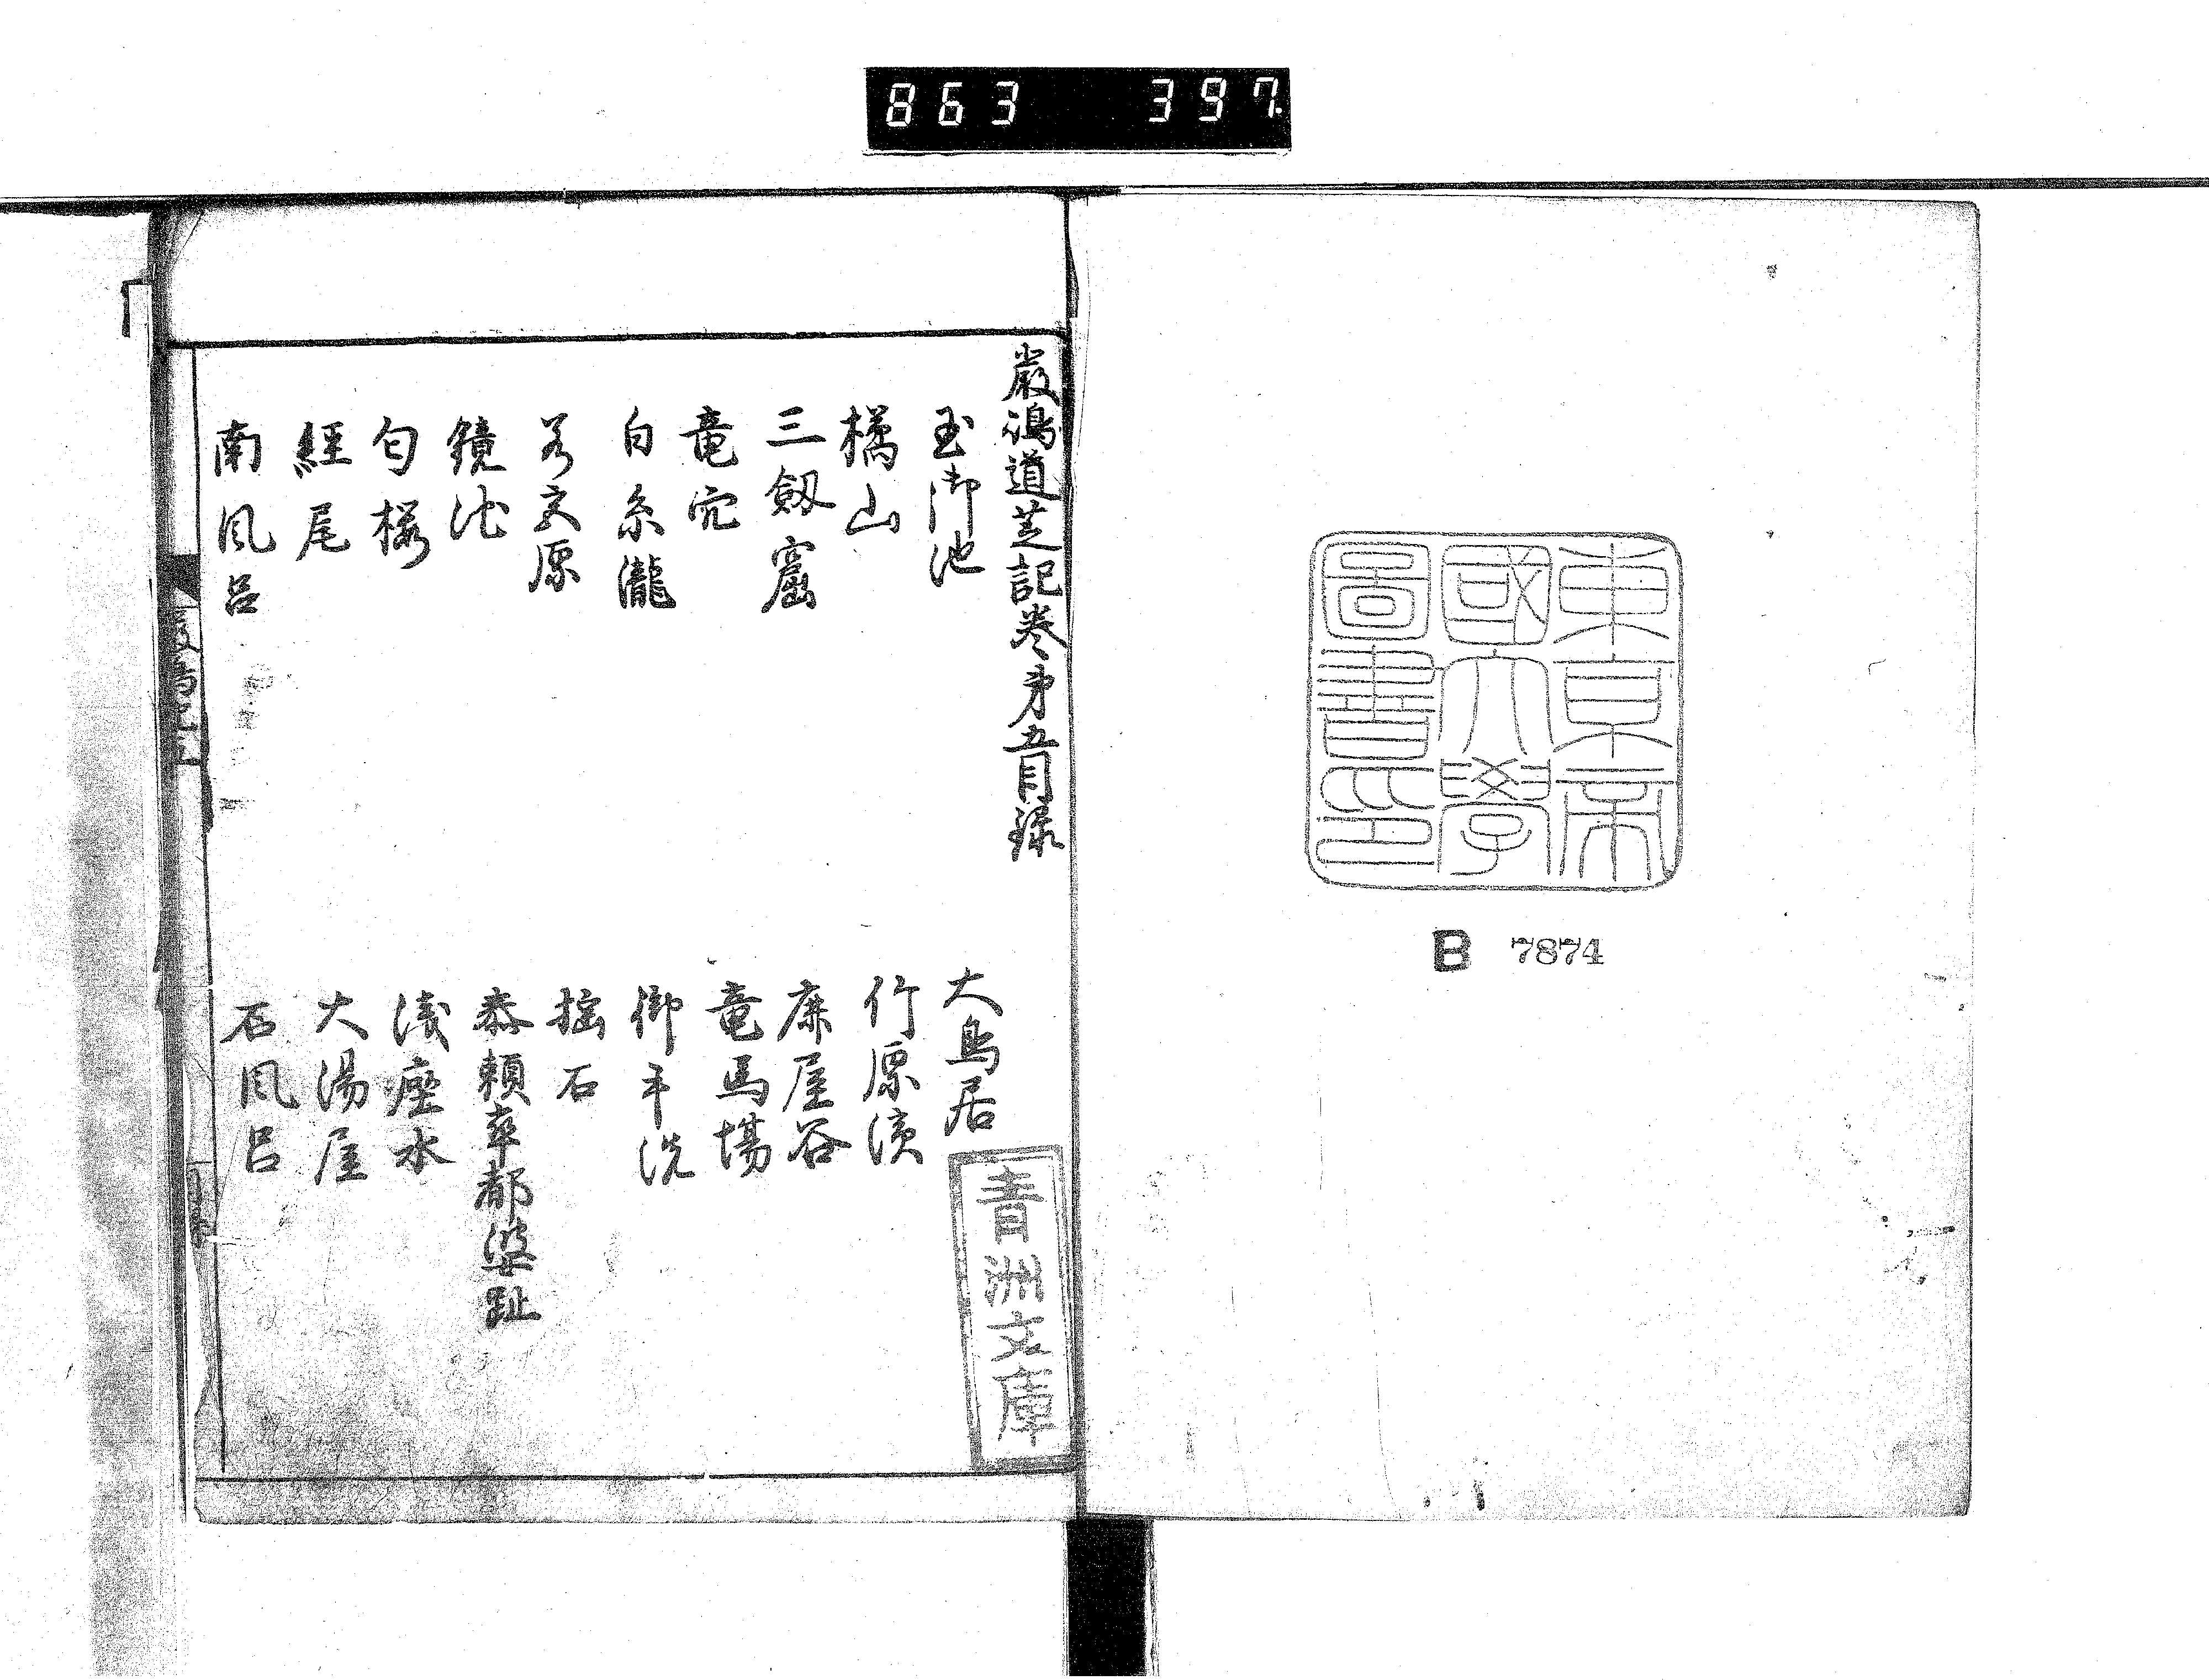 863 397.
東京帝
國大學
圖書印
B 7874
嚴嶋道芝記巻第五目録
玉御池
大鳥居
橘山
竹原濱
三劔窟
麻屋谷
竜穴
竜馬場
白糸瀧
御手洗
原
揺石
鏡池
泰頼卒都婆趾
匂桜
浅痙水
經尾
大湯屋
南風呂
石風呂
青洲文庫